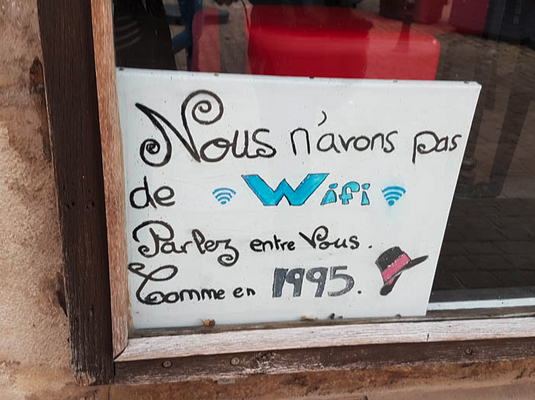 Nous n'avons pas
de Wifi
Parlez entre Vous.
Comme en 1995.